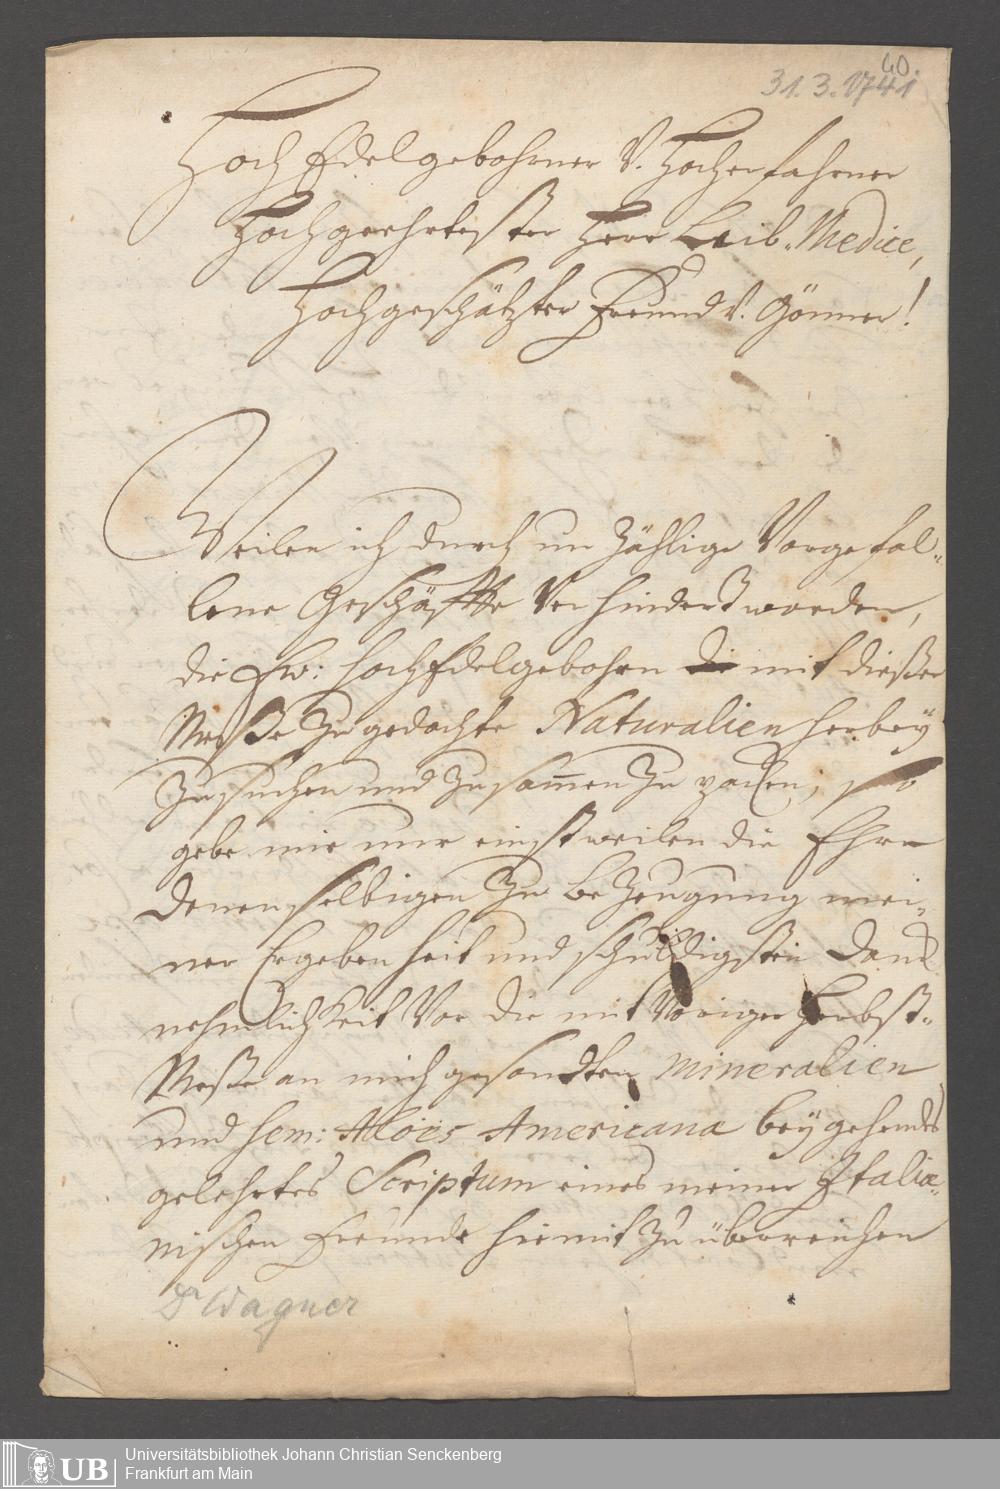 40.
31.3.1741
Hoch Edelgebohrner V. Hocherfahrner
Hochgeehrtester Herr Leib-Medice,
Hochgeschätzter Freund V. Gönner!
Weilen ich durch unzählige Vorgefal-
lene Geschäffte Verhindert worden,
die Ew: HochEdelgebohrn mit dießer
Meße zugedachte Naturalien herbey
zu suchen und zusam̄en zu packen; so
gebe mir nur einstweilen die Ehre
Denenselbigen zu Bezeugung mei-
ner Ergebenheit und schuldigsten Danck
nehmlichkeit Vor die mit Voriger Herbst-
Meße an mich gesandten Mineralien
und Sem: Aloës Americanae beygehendes
gelehrtes Scriptum eines meiner Italiæ-
nischen Freunde hiemit zu überreichen
Dr Wagner
UB
Universitätsbibliothek Johann Christian Senckenberg
Frankfurt am Main